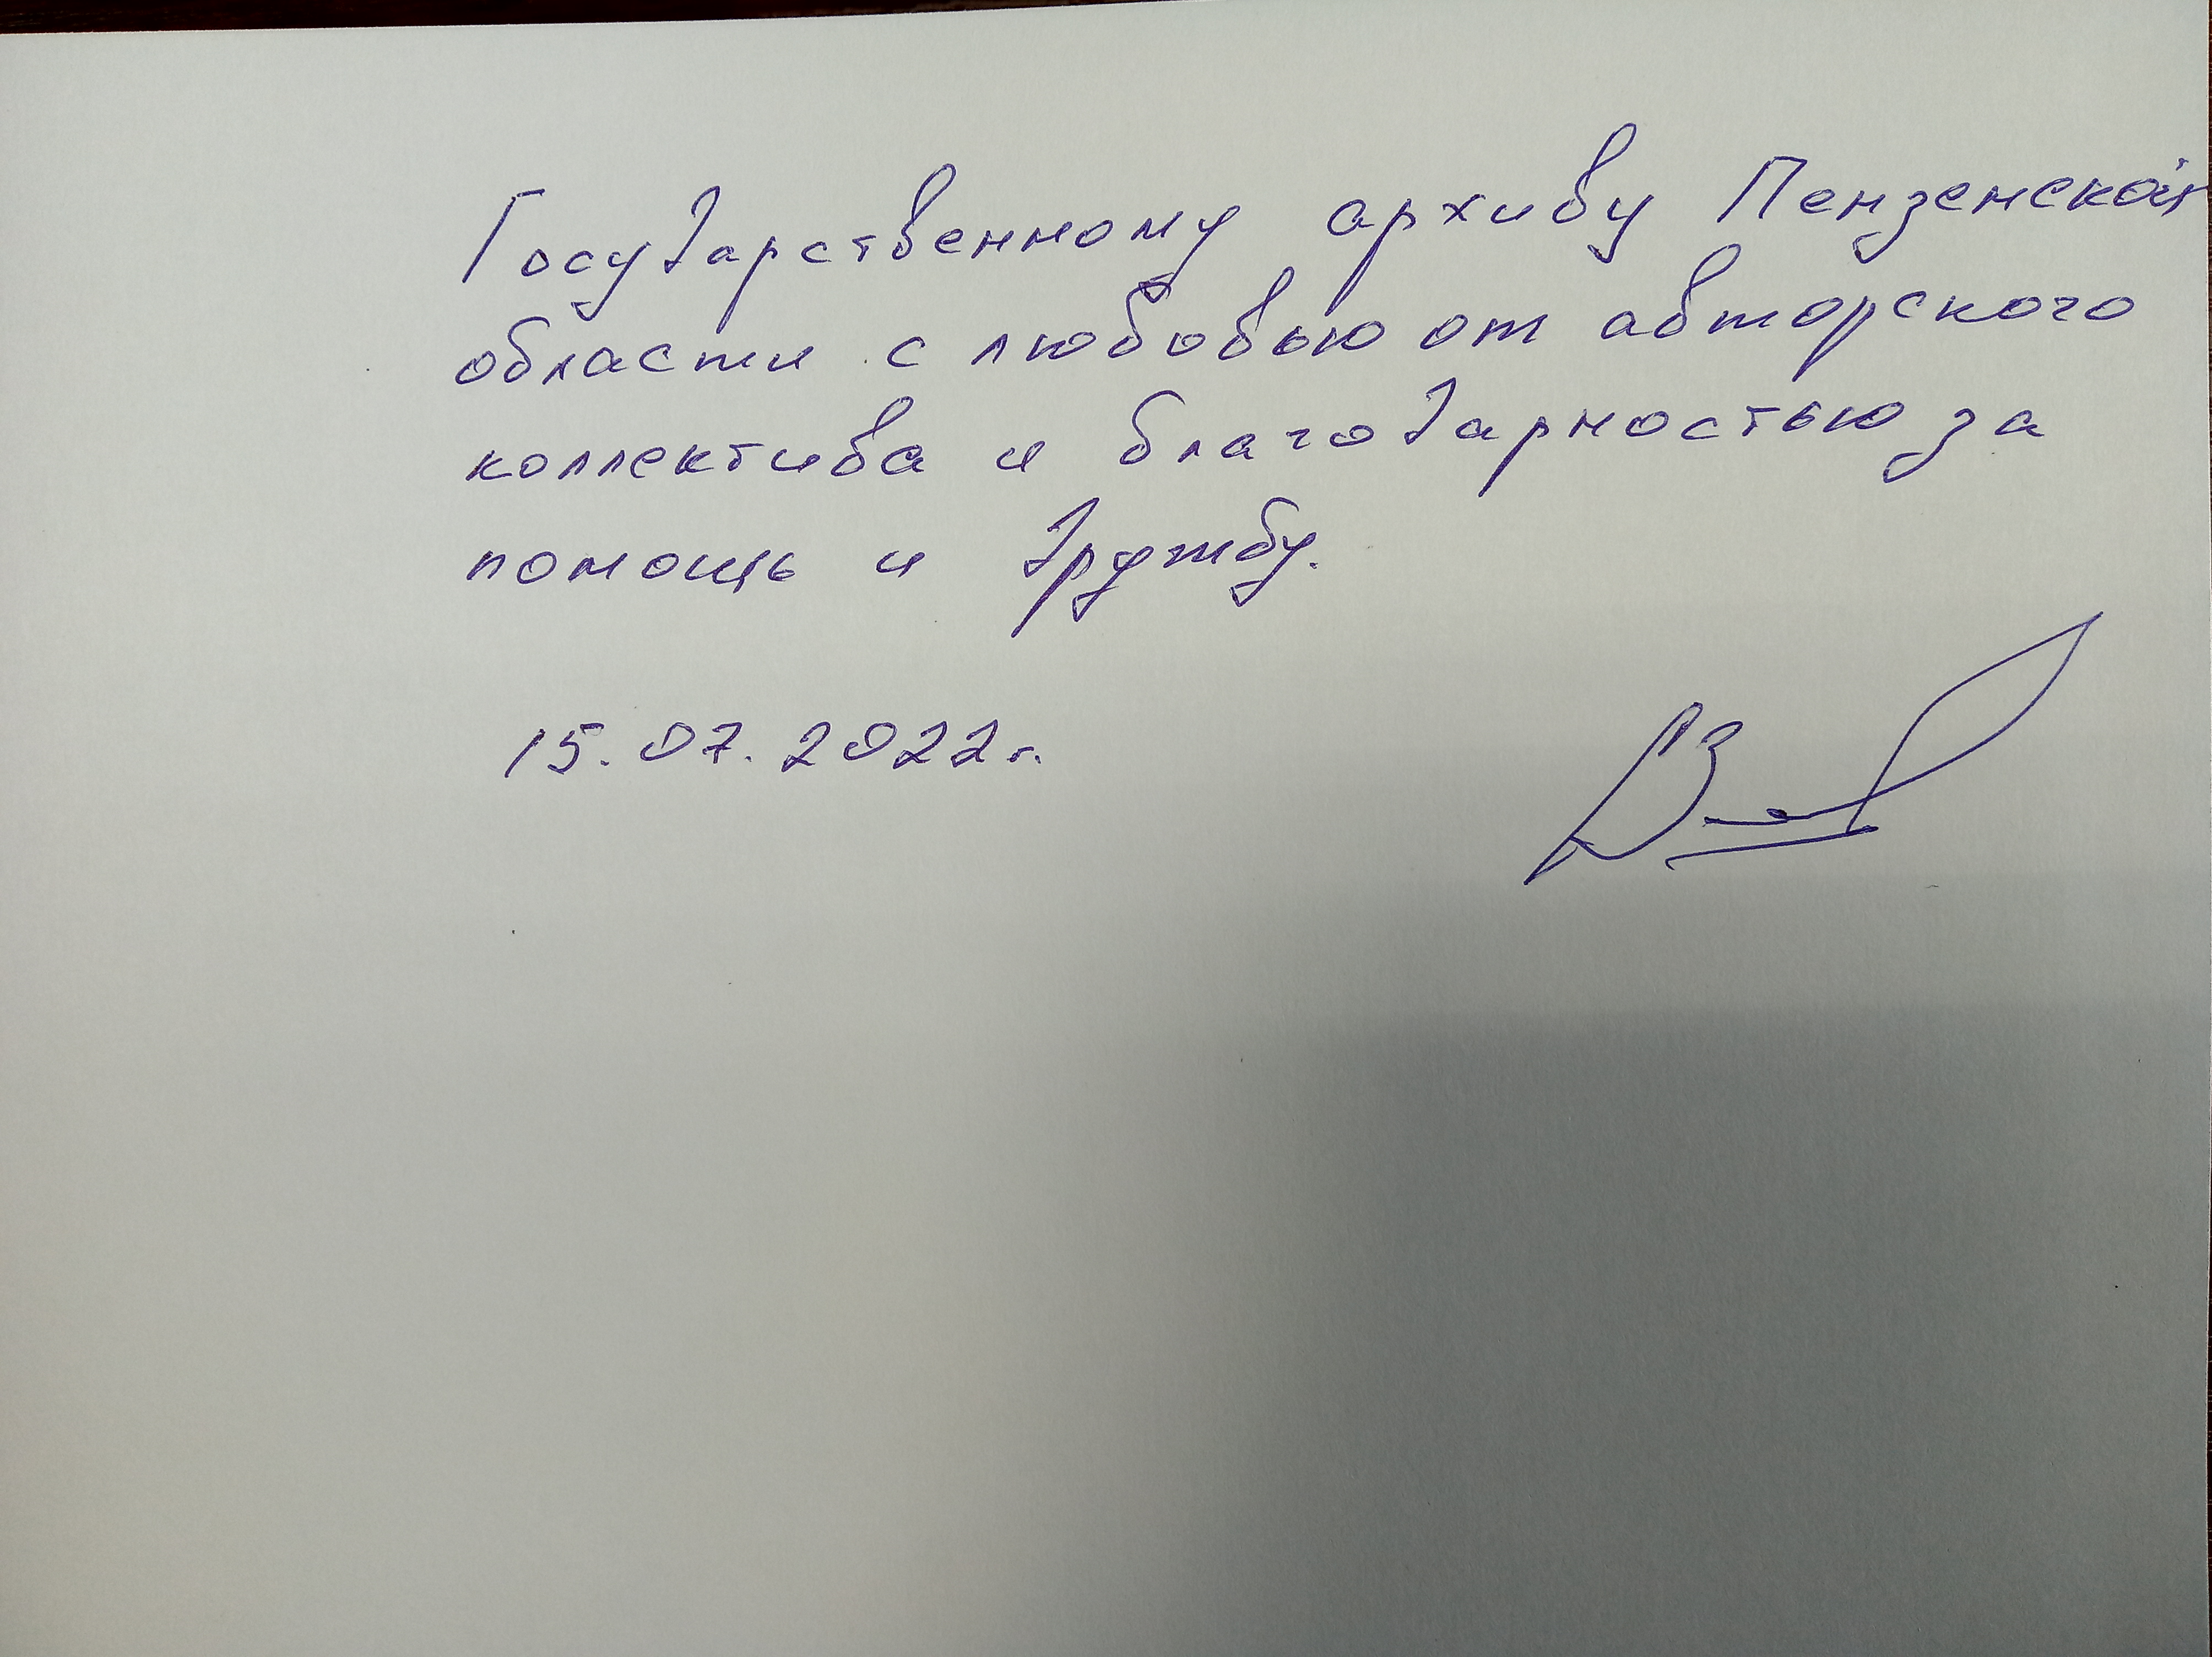 Государственному архиву Пензенской
области с любовью от авторского
коллектива и благодарностью за
помощь и дружбу.
15.07.2022г.